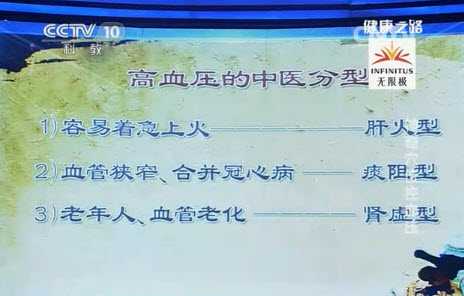 CCTV 10
科教
健康之路
INFINITUS
无限极
高血压的中医分型
1)容易着急上火————肝火型
2)血管狭窄、合并冠心病——痰阻型
3)老年人、血管老化————肾虚型